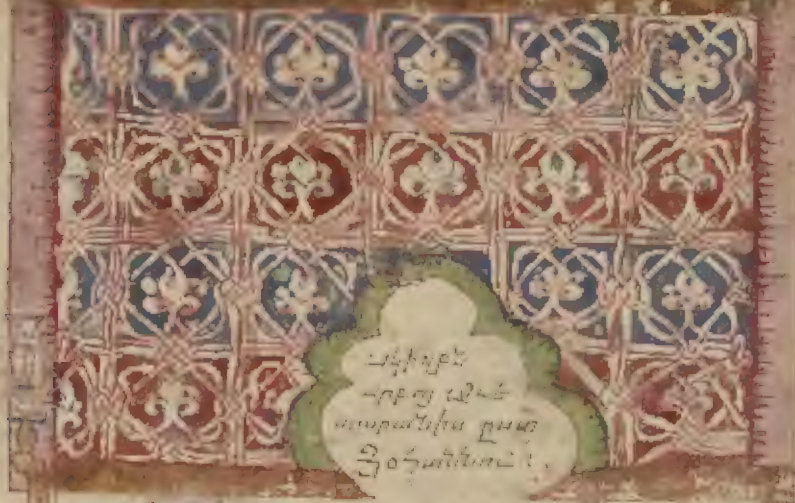 սկիզբն
սրբոյ աւե
տարանիս ըստ
Յօհաննու ։